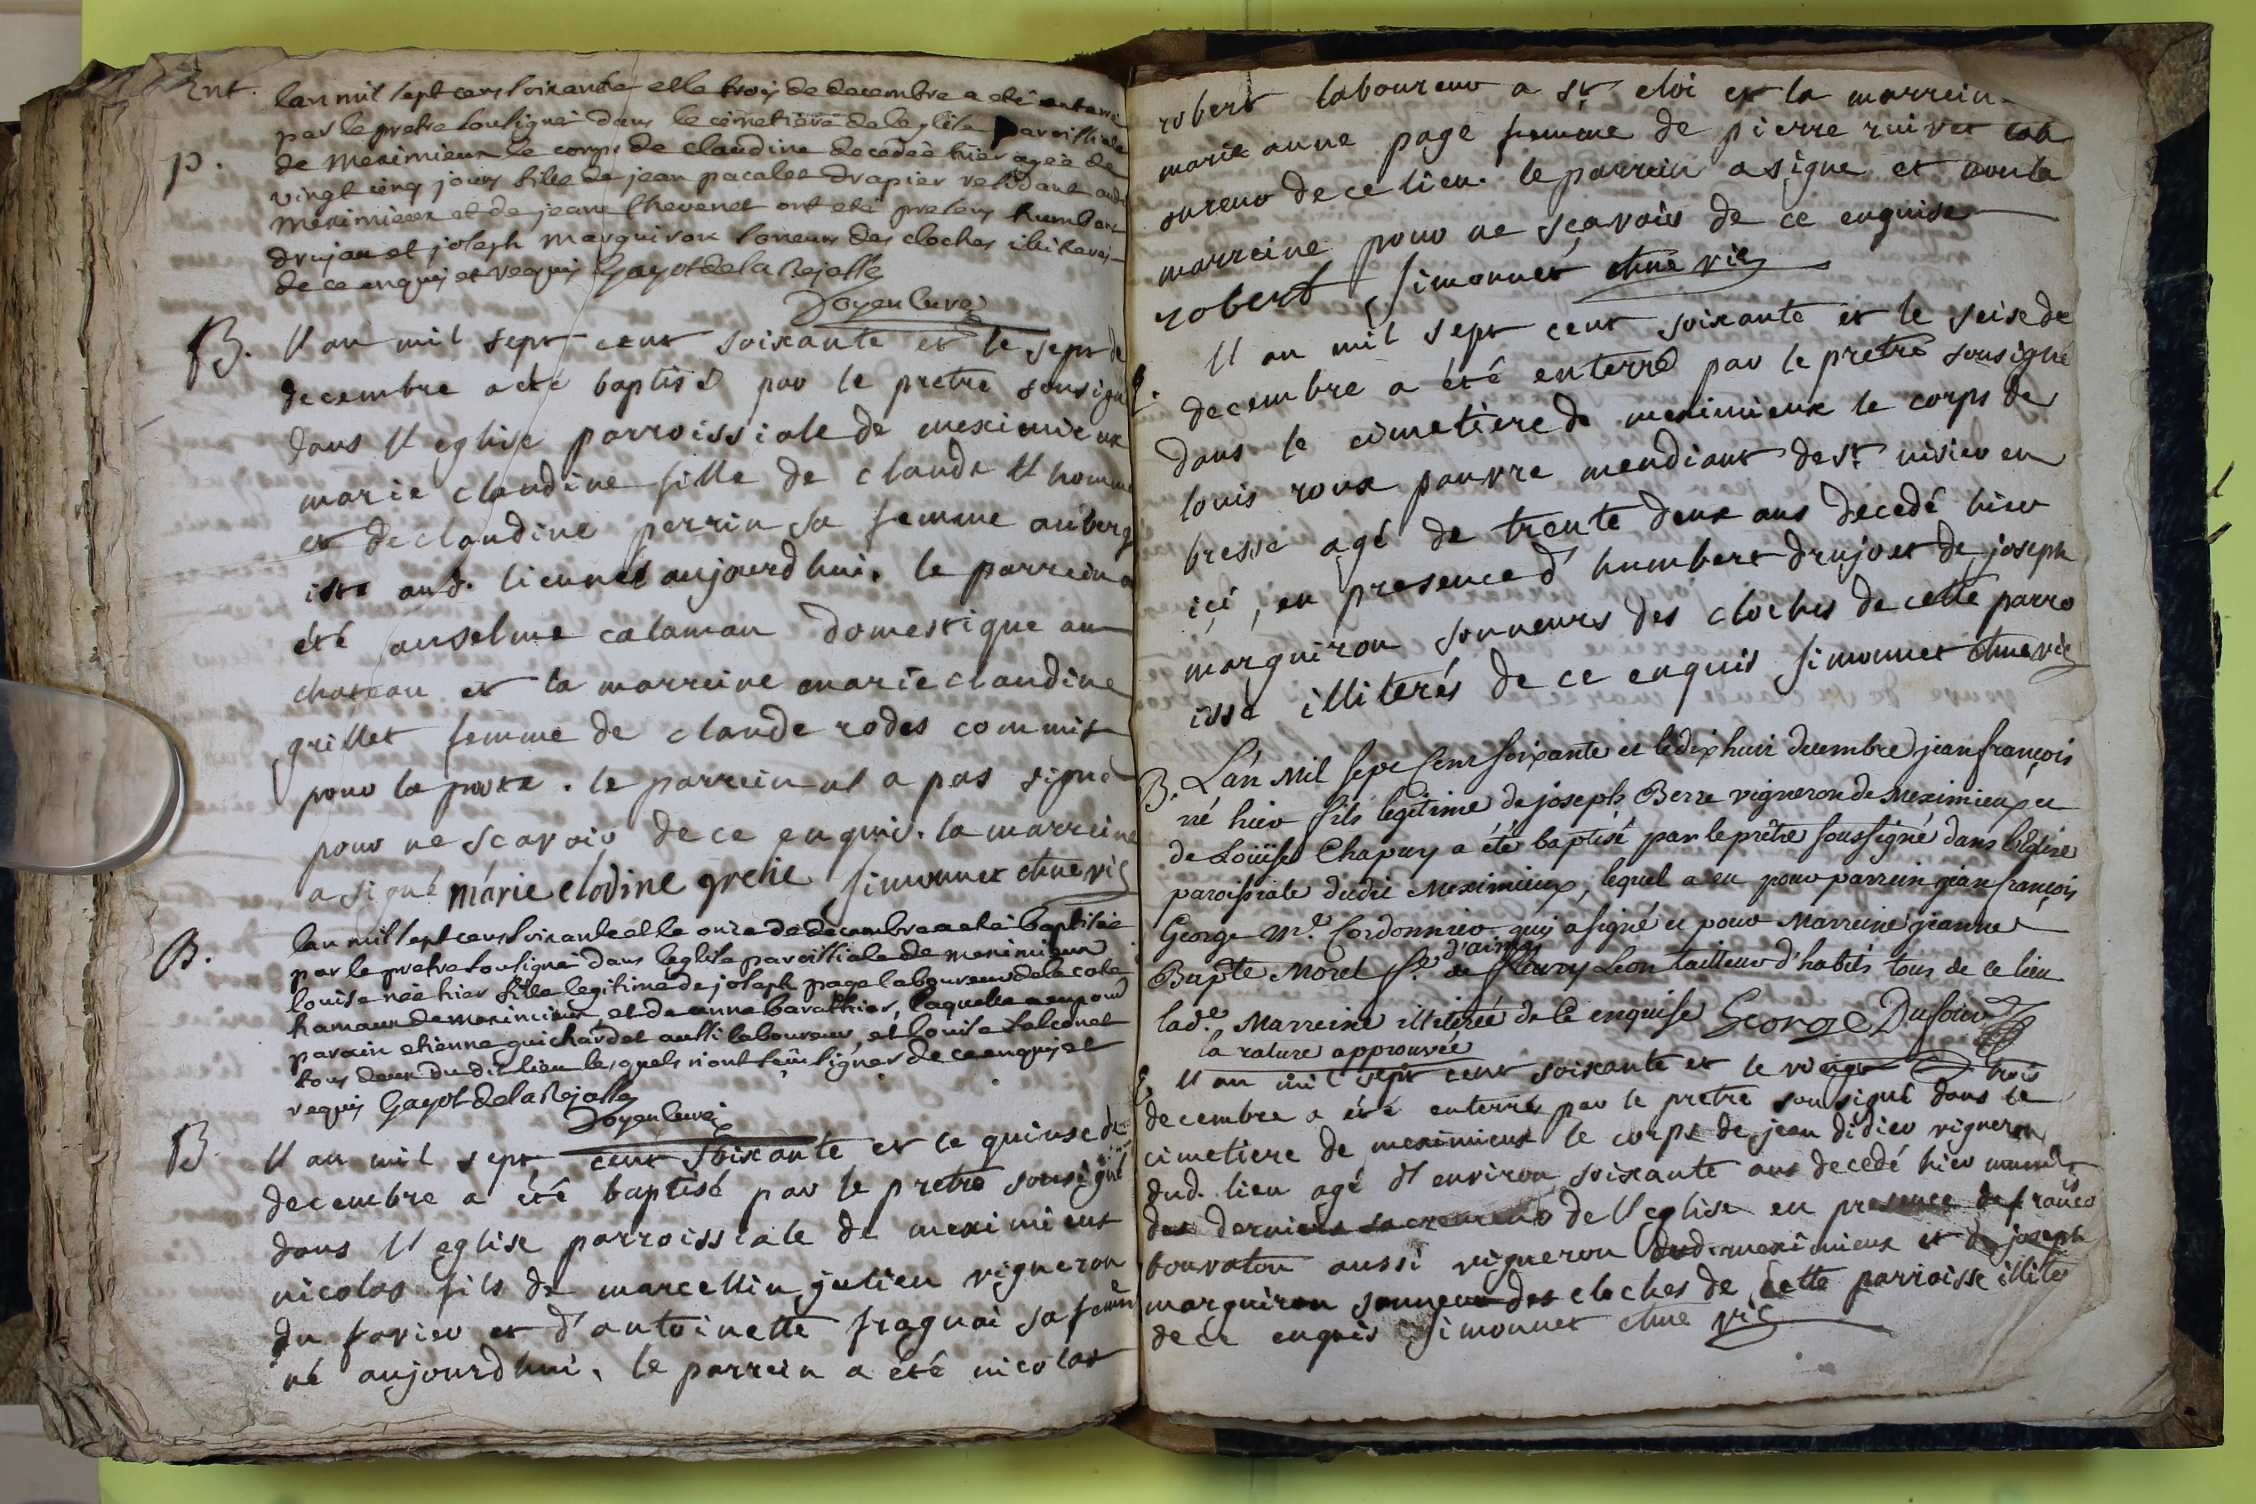 Ent. lan mil sept cens soixante et le trois de decembre a eté enterré
par le pretre sousigné dans le cimetiere de leglise paroissiale
p. de meximieux le corps de claudine decedeé hier ageé de
vingt cinq jours fille de jean pacalet drapier residant aud
meximieux et de jeane thevenet ont eté presens humbert
drujon et joseph marguiron soneurs des cloches illiteres
de ce enquis et requis Gayot de la Rejasse
Doyen Curé
B. l'an mil sept cent soixante et le sept de
decembre a eté baptisé par le pretre sousigné
dans l'eglise parroissiale de meximieux
marie claudine fille de claude l'homme
et de claudine perrin sa femme auberg
iste aud. lieu neé aujourdhui. le parrein a
été anselme calaman domestique au
chateau et la marreine marie claudine
grillet femme de claude rodes commis
pour la poste. le parrein n'a pas signé
pour ne scavoir de ce enquis. la marreine
a signé marie clodine grelie simonnet chne vic
B. lan mil sept cens soixante et le onze de decembre a eté baptisée
par le pretre sousigné dans leglise paroissiale de meximieux
louise née hier fille legitime de joseph page laboureur de la cote
hameau de meximieux et de anne barathier, laquelle a eu pour
parain etienne guichardet aussi laboureur, et louise falconet
tous deux du dit lieu lesquels n'ont sçeu signer de ce enquis et
requis Gayot de la Rejasse
Doyen Curé
B. l'an mil sept cent soixante et le quinse de
decembre a été baptisé par le pretre sousigné
dans l'eglise parroissiale de meximieux
nicolas fils de marcellin julien vigneron
du favier et d'antoinette fragnai sa femme
né aujourdhui. le parrein a été nicolas
robert laboureur a st eloi et la marreine
marie anne page femme de pierre ruivet lab
oureur de ce lieu. le parrein a signé et non la
marreine pour ne sçavoir de ce enquise
robert simonnet chne vic
l'an mil sept cent soixante et le seise de
decembre a été enterré par le pretre sousigné
dans le cimetiere de meximieux le corps de
louis roux pauvre mendiant de st nisier en
bresse agé de trente deux ans decedé hier
ici, en presence d'humbert drujon et de joseph
marguiron sonneurs des cloches de cette parro
isse illiterés de ce enquis simonnet chne vic
B. L'an Mil sept Cent soixante et le dix huit decembre jean françois
né hier fils légitime de joseph Berre vigneron de Meximieux et
de Loüise Chapuy a été baptisé par le prêtre soussigné dans l'église
paroissiale dudit Meximieux, lequel a eu pour parrein jean françois
George Me. Cordonnier qui a signé et pour Marreine jeanne
d'aimé
Bapte Morel fe. de fleury Leon tailleur d'habits tous de ce lieu
lade. Marreine illiterée de ce enquise George Dufour
la rature approuvée
E. l'an mil sept cent soixante et le vingt trois
decembre a été enterré par le pretre sousigné dans le
cimetiere de meximieux le corps de jean didier vigneron
dud. lieu agé d'environ soixante ans decedé hier muni
des derniers sacremens de l'eglise en presence de francois
bouvaton aussi vigneron dud. meximieux et de joseph
marguiron sonneur des cloches de cette parroisse illiter
de ce enquis simonnet chne vic